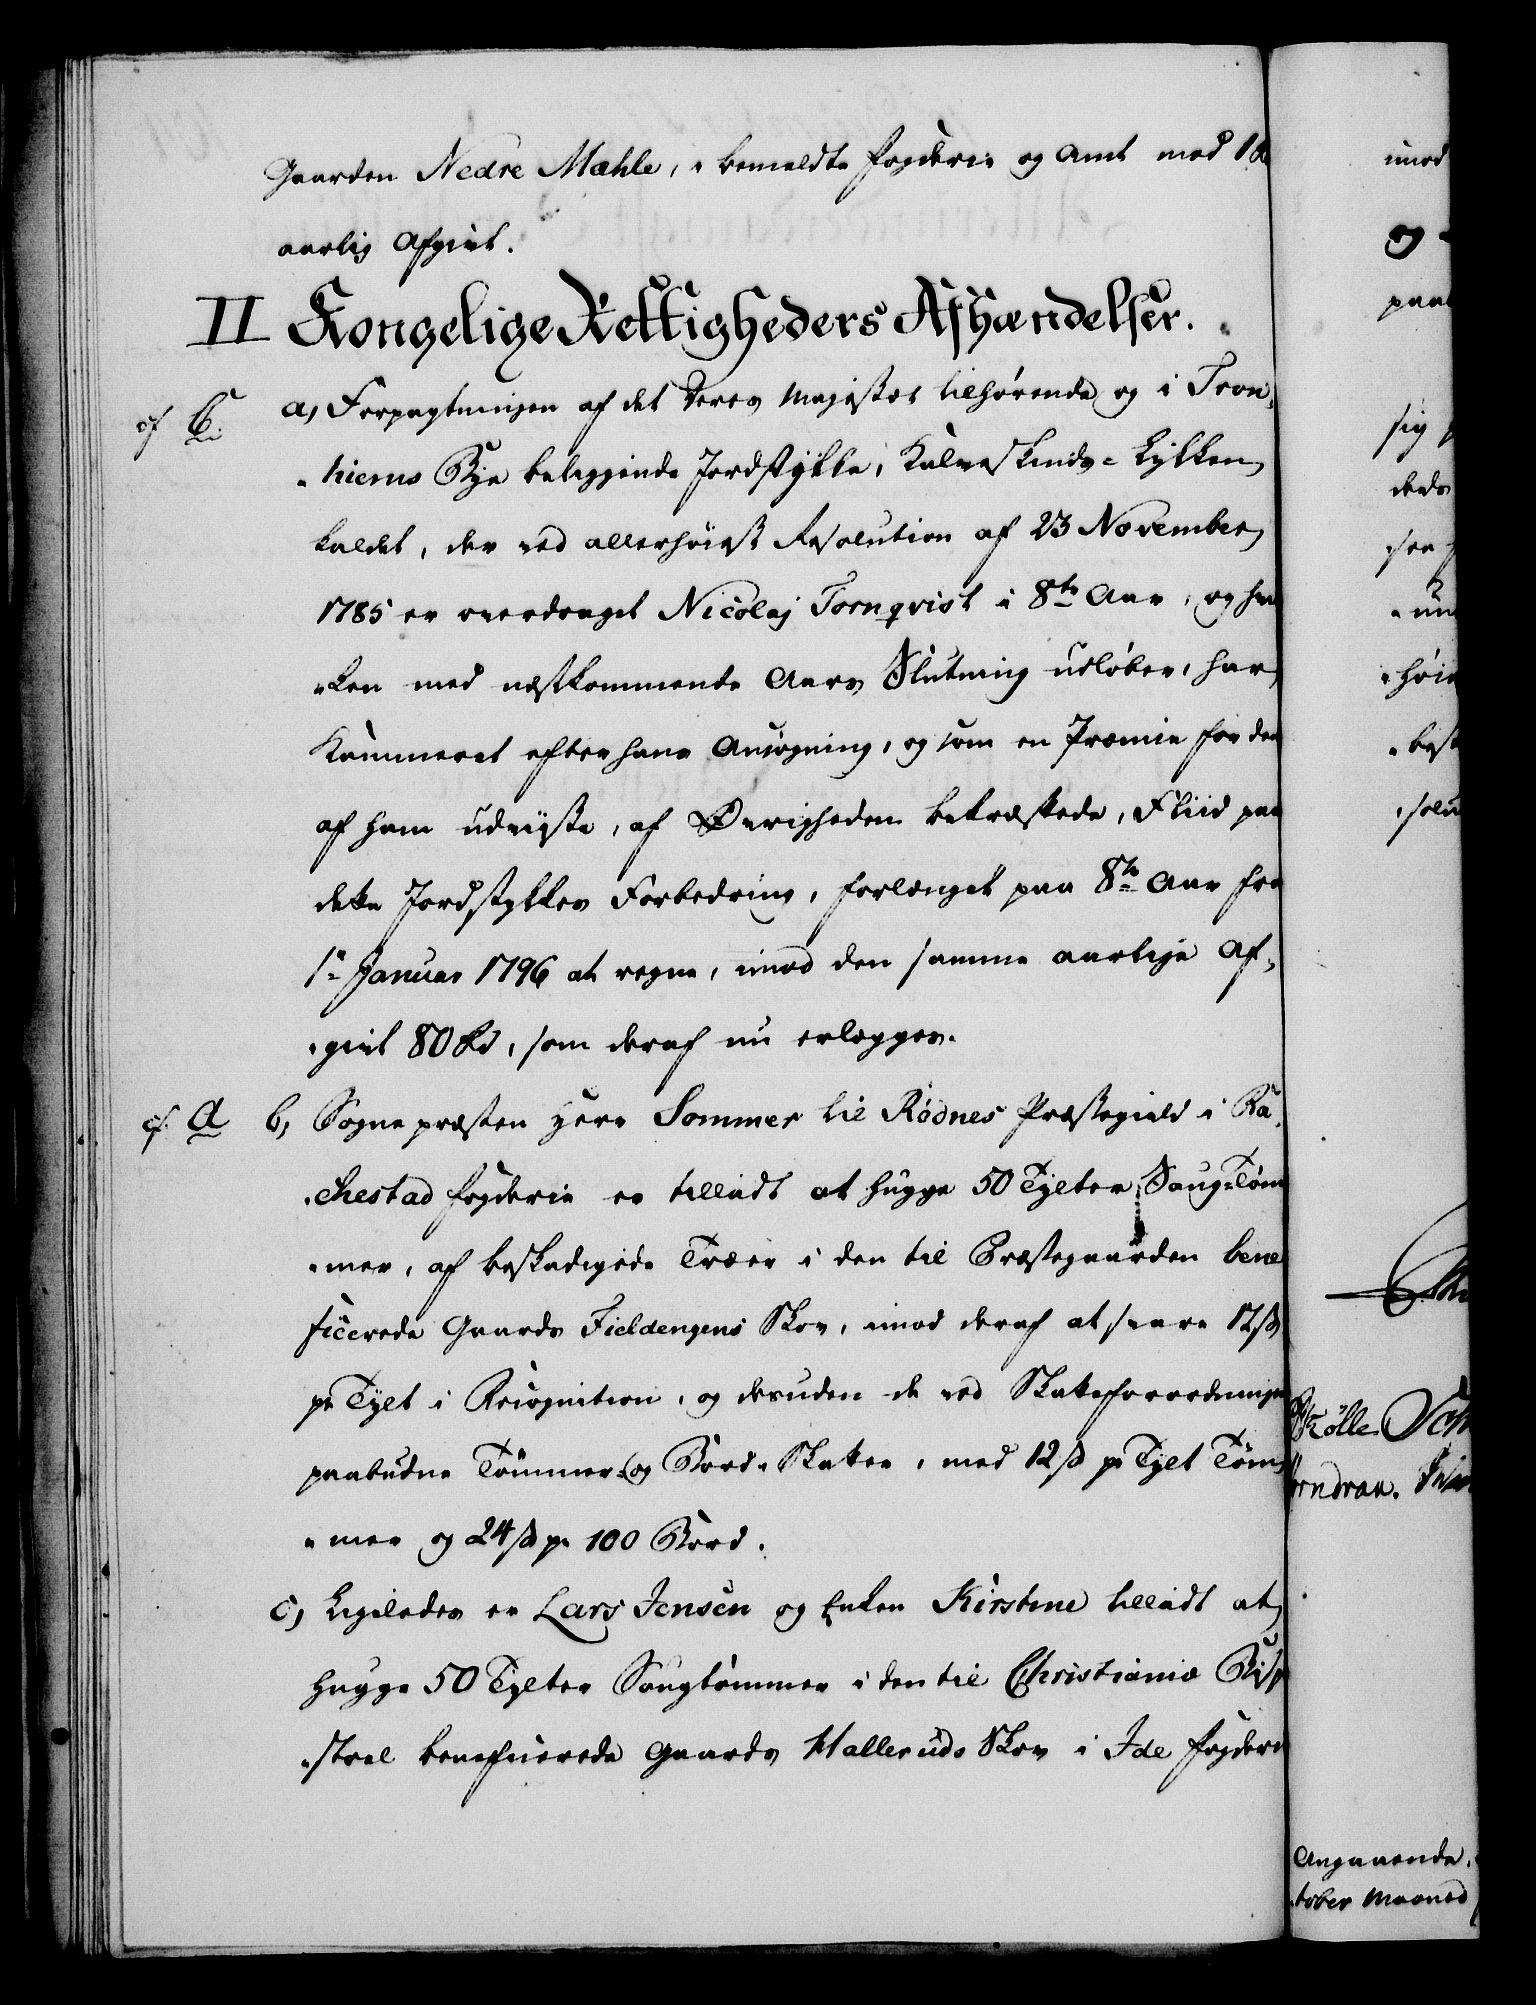 Gaarden Nedre Mæhle, i bemeldte Fogderie og Amt med 1 Rd
aarlig Afgivt.
II Kongelige Rettigheders Afhændelser.
cf C. a, Forpagtningen af det Deres Majestæt tilhørende og i Tron-
hiems Bye beliggende Jordstykke, Kalveskinds-Lykken
kaldet, der ved allerhøiest Resolution af 23 November
1785 er overdraget Nicolaj Tornqvist i 8te Aar, og hvil-
ken med næstkommende Aars Slutning udløber, har
Kammeret efter hans Ansøgning, og som en Præmie for den
af ham udviiste, af Øvrigheden bekræftede, Fliid paa
dette Jordstykkes Forbedring, forlænget paa 8te Aar fra
1te Januar 1796 at regne, imod den samme aarlige Af-
givt 80 Rd, som deraf nu erlægges.
cf. A b, Sognepræsten Herr Sommer til Rødnes Præstegield i Ra-
chestad Fogderie er tilladt at hugge 50 Tylter Saug-Tøm-
mer, af beskadigede Træer i den til Præstegaarden bene-
ficerede Gaards Fieldengens Skov, imod deraf at svare 12 s
pr Tylt i Recognition, og desuden de ved Skatteforordningen
paabudne Tømmer- og Bord-Skatter, med 12 s pr Tylt Tøm-
mer og 24 s pr 100 Bord.
c, Ligeledes er Lars Jensen og Enken Kirstine tilladt at
hugge 50 Tylter Saugtømmer i den til Christianiæ Bisp-
stoel beneficerede Gaards Halleruds Skov i Ide Fogderie
imod
og
paa
sig
deds
høie
Kølle. Sch
rndran.
Angaaende
tober Maaned